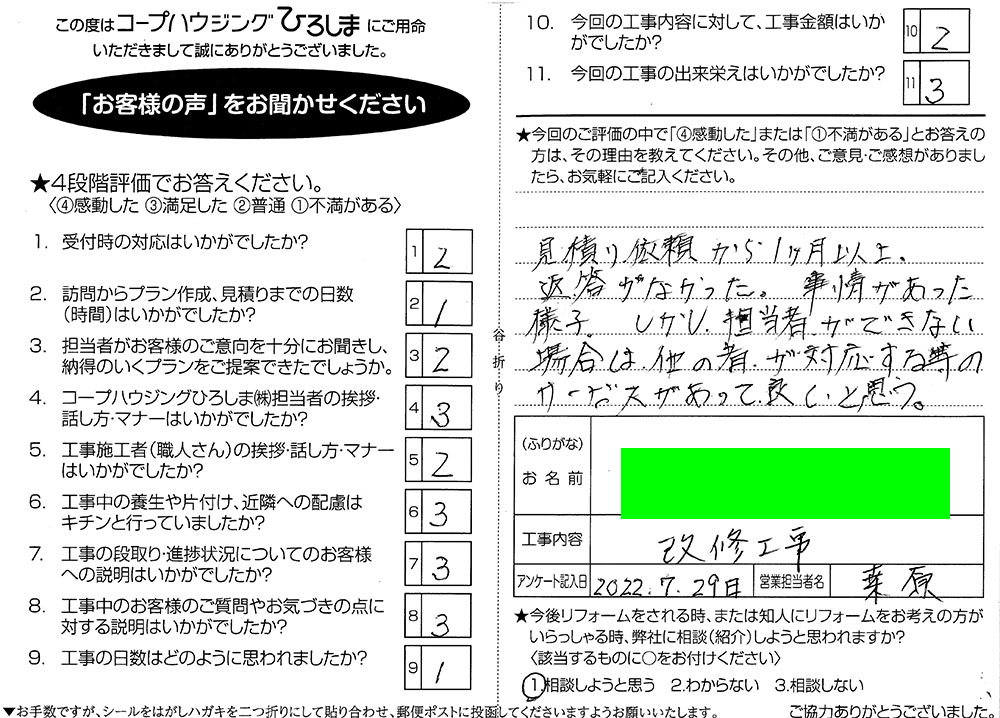 この度はコープハウジングひろしまにご用命
いただきまして誠にありがとうございました。
「お客様の声」をお聞かせください
★4段階評価でお答えください。
〈④感動した ③満足した ②普通 ①不満がある〉
1. 受付時の対応はいかがでしたか?
1 2
2. 訪問からプラン作成、見積りまでの日数
(時間)はいかがでしたか?
2 1
3. 担当者がお客様のご意向を十分にお聞きし、
納得のいくプランをご提案できたでしょうか。
3 2
4. コープハウジングひろしま㈱担当者の挨拶・
話し方・マナーはいかがでしたか?
4 3
5. 工事施工者(職人さん)の挨拶・話し方・マナー
はいかがでしたか?
5 2
6. 工事中の養生や片付け、近隣への配慮は
キチンと行っていましたか?
6 3
7. 工事の段取り・進捗状況についてのお客様
への説明はいかがでしたか?
7 3
8. 工事中のお客様のご質問やお気づきの点に
対する説明はいかがでしたか?
8 3
9. 工事の日数はどのように思われましたか?
9 1
▼お手数ですが、シールをはがしハガキを二つ折りにして貼り合わせ、郵便ポストに投函してくださいますようお願いいたします。
谷折り
10. 今回の工事内容に対して、工事金額はいか
がでしたか?
10 2
11. 今回の工事の出来栄えはいかがでしたか?
11 3
★今回のご評価の中で「④感動した」または「①不満がある」とお答えの
方は、その理由を教えてください。その他、ご意見・ご感想がありまし
たら、お気軽にご記入ください。
見積り依頼から1ヶ月以上、
返答がなかった。 事情があった
様子。 しかし、担当者ができない
場合は他の者が対応する等の
があって良いと思う。
(ふりがな)
お名前
工事内容
改修工事
アンケート記入日
2022.7.29日
営業担当者名
桒原
★今後リフォームをされる時、または知人にリフォームをお考えの方が
いらっしゃる時、弊社に相談(紹介)しようと思われますか?
〈該当するものに○をお付けください〉
1.相談しようと思う 2.わからない 3.相談しない
ご協力ありがとうございました。